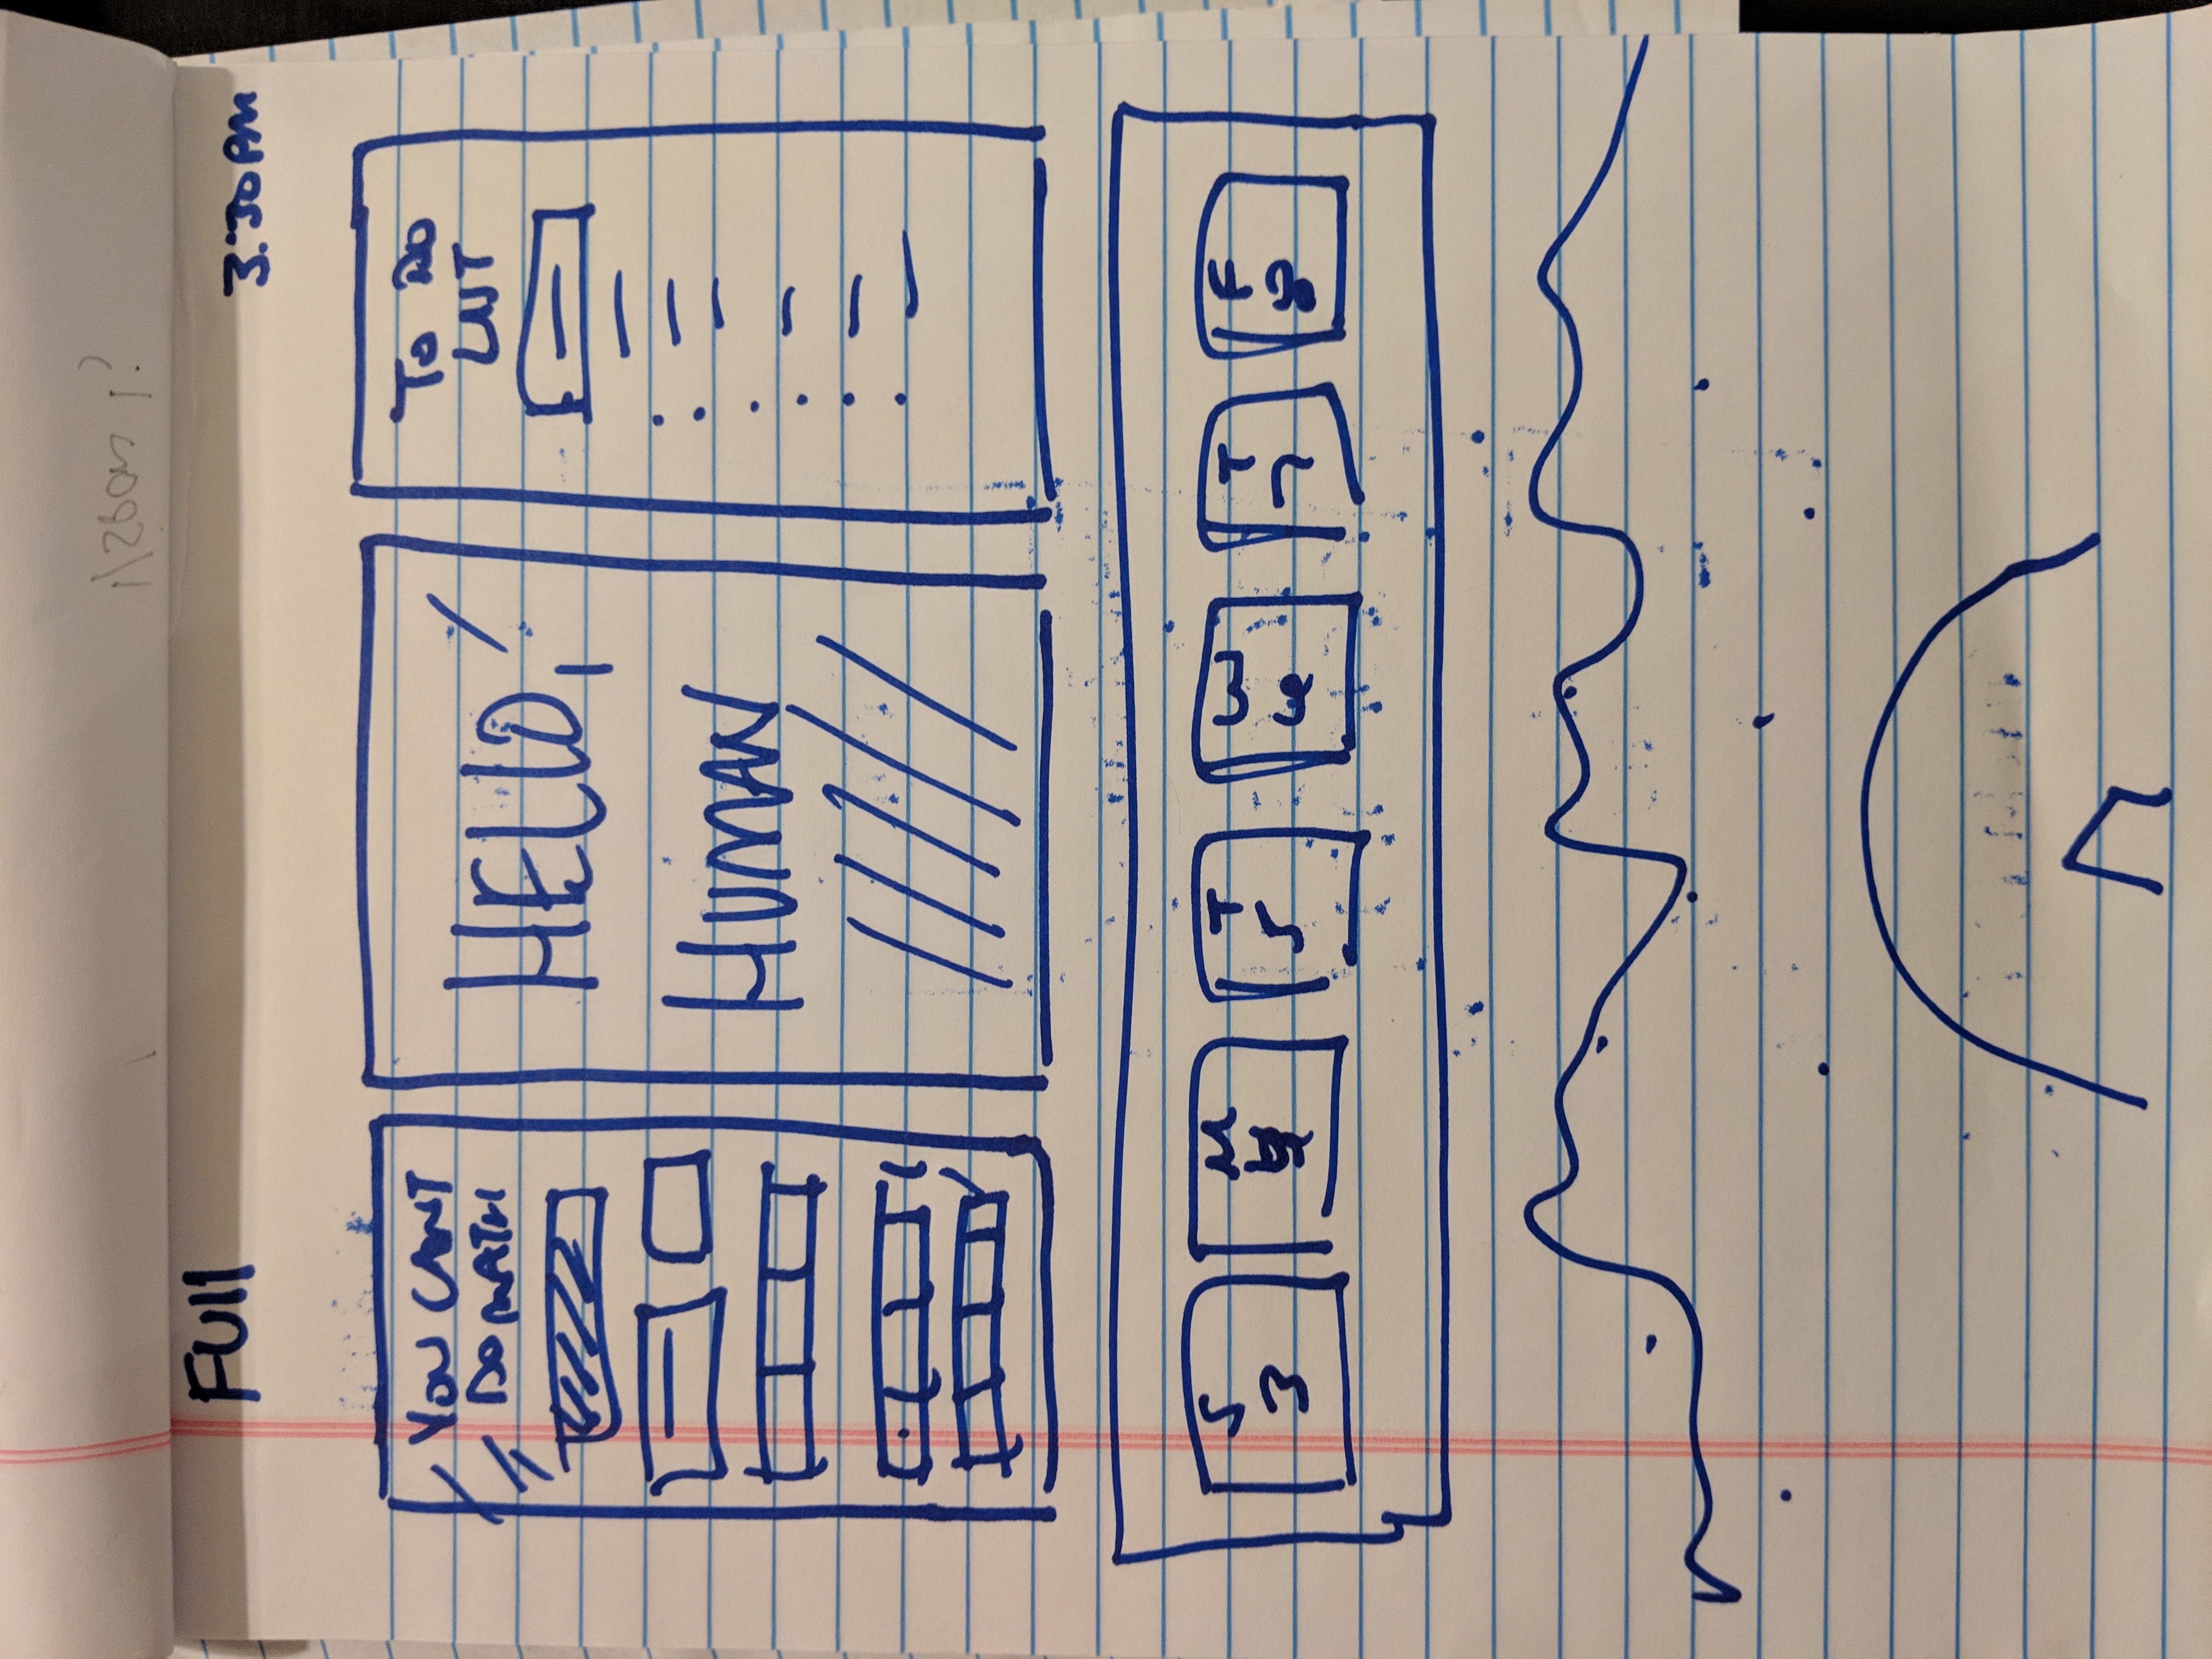 Full
3:30PM
YOU CANT
DO MATH
HELLO,
HUMAN
TO DO
LIST
S M T W T F
3 4 5 6 7 8